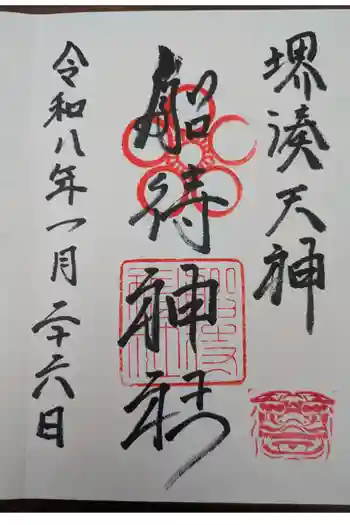 堺湊天神
船待神社
令和八年一月二十六日
船待
神社